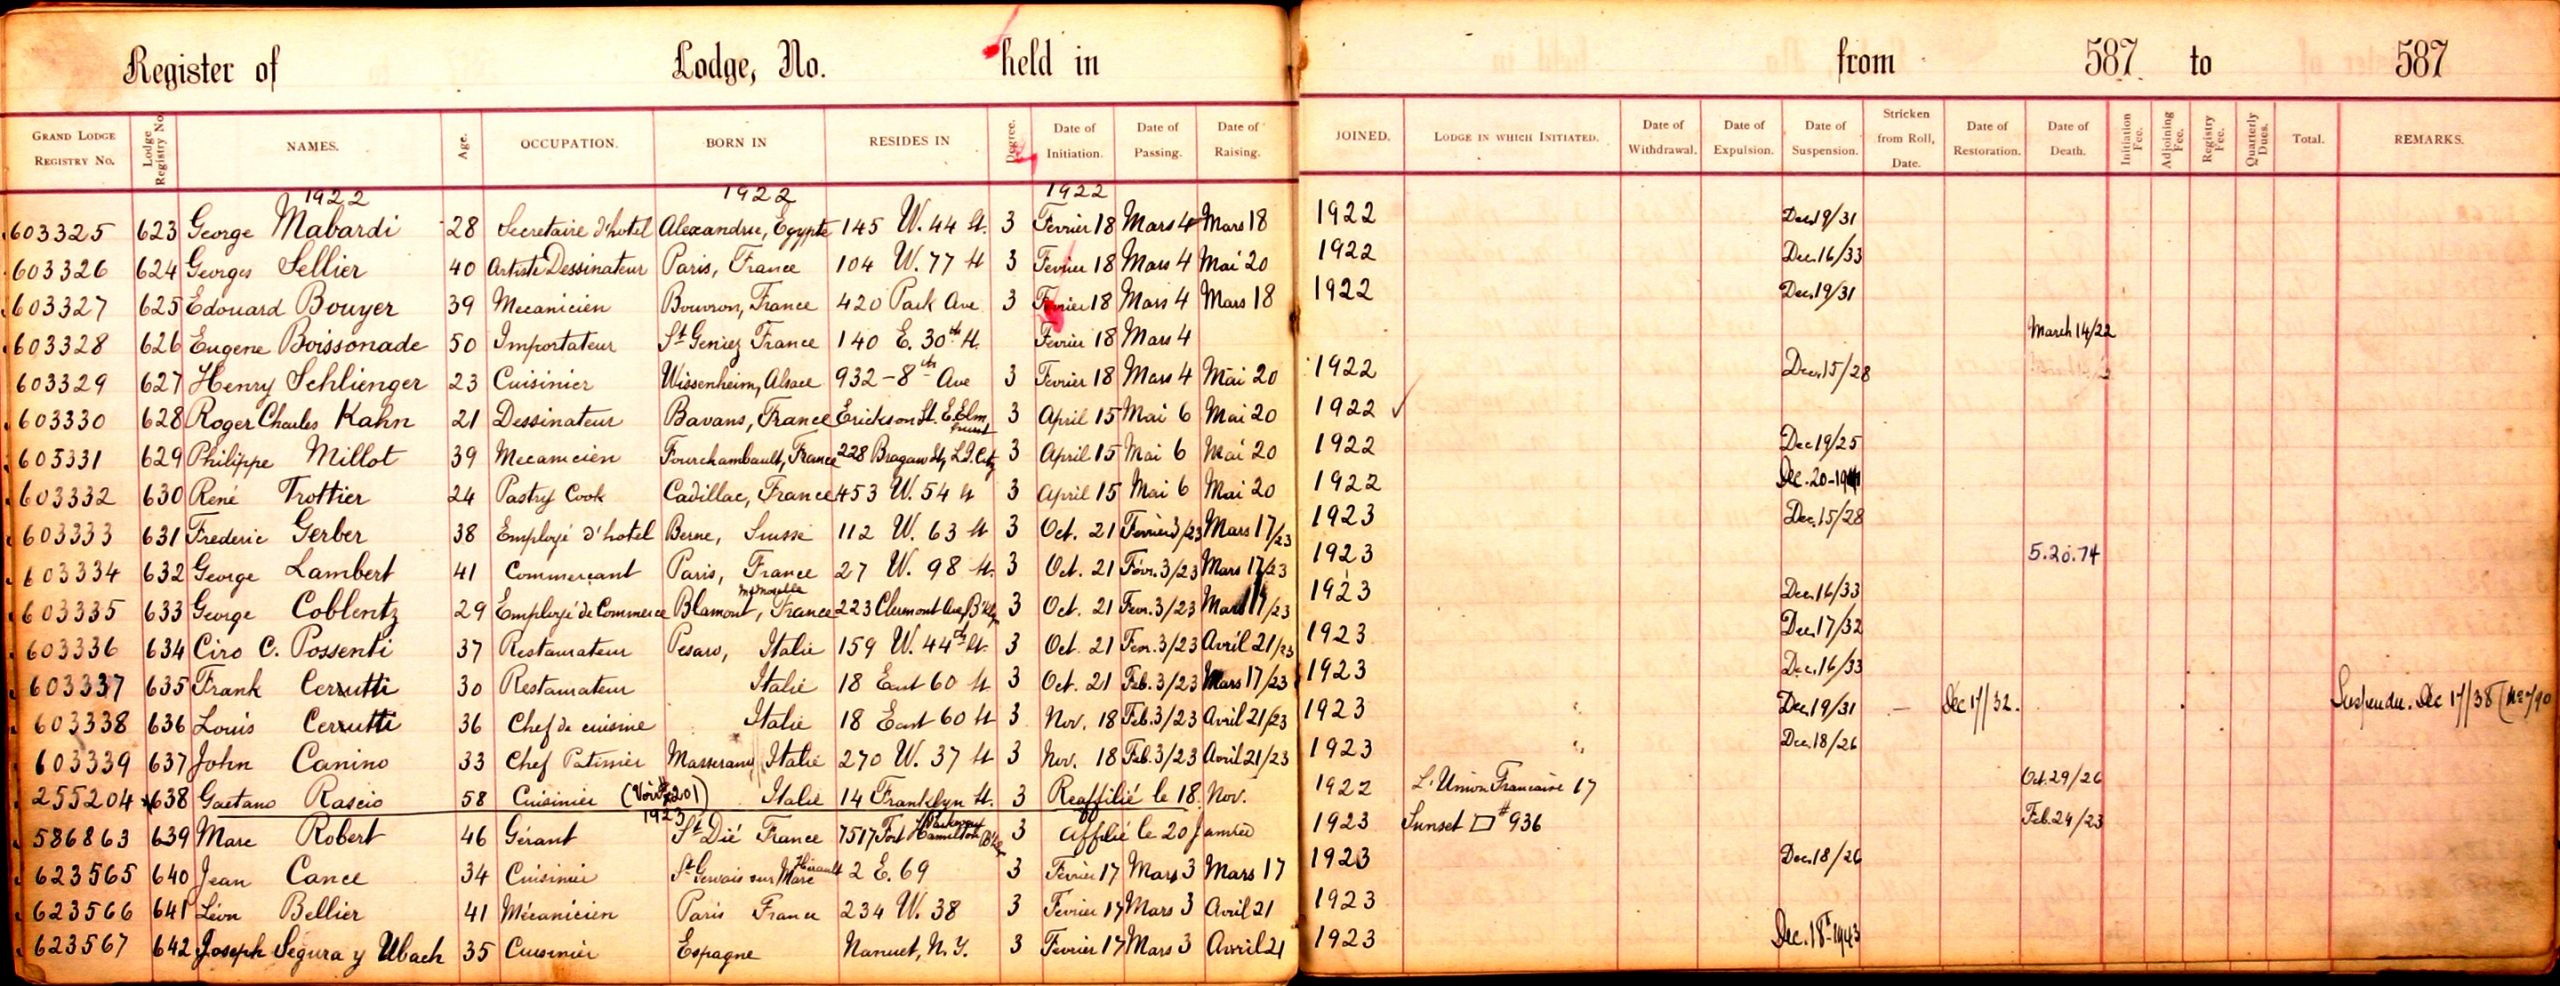 Register of Lodge, No. held in from 587 to 587
GRAND LODGE REGISTRY NO. Lodge Registry No. NAMES. Age. OCCUPATION. BORN IN RESIDES IN Degree. Date of Initiation. Date of Passing. Date of Raising. JOINED. LODGE IN WHICH INITIATED. Date of Withdrawal. Date of Expulsion. Date of Suspension. Stricken from Roll, Date. Date of Restoration. Date of Death. Initiation Fee. Adjoining Fee. Registry Fee. Quarterly Dues. Total. REMARKS.
1922 1922 1922
603325 623 George Mabardi 28 Secretaire d'hotel Alexandrie, Egypte 145 W. 44 St. 3 Fevrier 18 Mars 4 Mars 18 1922 Dec. 19/31
603326 624 Georges Sellier 40 Artiste Dessinateur Paris, France 104 W. 77 St 3 Fevrier 18 Mars 4 Mai 20 1922 Dec. 16/33
603327 625 Edouard Bouyer 39 Mecanicien Bouvron, France 420 Park Ave 3 Fevrier 18 Mars 4 Mars 18 1922 Dec. 19/31
603328 626 Eugene Boissonade 50 Importateur St Geniez France 140 E. 30th St. Fevrier 18 Mars 4 March 14/22
603329 627 Henry Schlienger 23 Cuisinier Wissenheim, Alsace 932-8th Ave 3 Fevrier 18 Mars 4 Mai 20 1922 Dec. 15/28
603330 628 Roger Charles Kahn 21 Dessinateur Bavans, France Erickson St. E. Elmhurst 3 April 15 Mai 6 Mai 20 1922 ✓
603331 629 Philippe Millot 39 Mecanicien Fourchambault, France 228 Bragaw St, L.I. City 3 April 15 Mai 6 Mai 20 1922 Dec 19/25
603332 630 René Trottier 24 Pastry Cook Cadillac, France 453 W. 54 St 3 April 15 Mai 6 Mai 20 1922 Dec. 20-
603333 631 Frederic Gerber 38 Employé d'hotel Berne, Suisse 112 W. 63 St 3 Oct. 21 Fevrier 3/23 Mars 17/23 1923 Dec. 15/28
603334 632 George Lambert 41 Commercant Paris, France 27 W. 98 St. 3 Oct. 21 Fevr. 3/23 Mars 17/23 1923 5.20.74
603335 633 George Coblentz 29 Employé de Commerce Blamont, France 223 Clermont Ave, B'klyn 3 Oct. 21 Fevr. 3/23 Mars 17/23 1923 Dec. 16/33
603336 634 Ciro C. Possenti 37 Restaurateur Pesaro, Italie 159 W. 44th St. 3 Oct. 21 Fevr. 3/23 Avril 21/23 1923 Dec. 17/32
603337 635 Frank Cerrutti 30 Restaurateur Italie 18 East 60 St 3 Oct. 21 Feb. 3/23 Mars 17/23 1923 Dec. 16/33
603338 636 Louis Cerrutti 36 Chef de cuisine Italie 18 East 60 St 3 Nov. 18 Feb. 3/23 Avril 21/23 1923 Dec. 19/31 Dec 17/32. Suspendu. Dec 17/38
603339 637 John Canino 33 Chef Patissier Masserano Italie 270 W. 37 St 3 Nov. 18 Feb. 3/23 Avril 21/23 1923 Dec. 18/26
255204 638 Gaetano Rascio 58 Cuisinier (Voir #201) Italie 14 Franklyn St. 3 Reaffilié le 18 Nov. 1922 L'Union Francaise 17 Oct. 29/26
1923
586863 639 Marc Robert 46 Gérant St Dié France 7517 Fort Hamilton Parkway Bklyn 3 affilié le 20 Janvier 1923 Sunset □ #936 Feb. 24/23
623565 640 Jean Cance 34 Cuisinier St Gervais sur Mare Herault 2 E. 69 3 Fevrier 17 Mars 3 Mars 17 1923 Dec. 18/26
623566 641 Léon Bellier 41 Mécanicien Paris France 234 W. 38 3 Fevrier 17 Mars 3 Avril 21 1923
623567 642 Joseph Segura y Ubach 35 Cuisinier Espagne Nanuet, N.Y. 3 Fevrier 17 Mars 3 Avril 21 1923 Dec. 18-1943